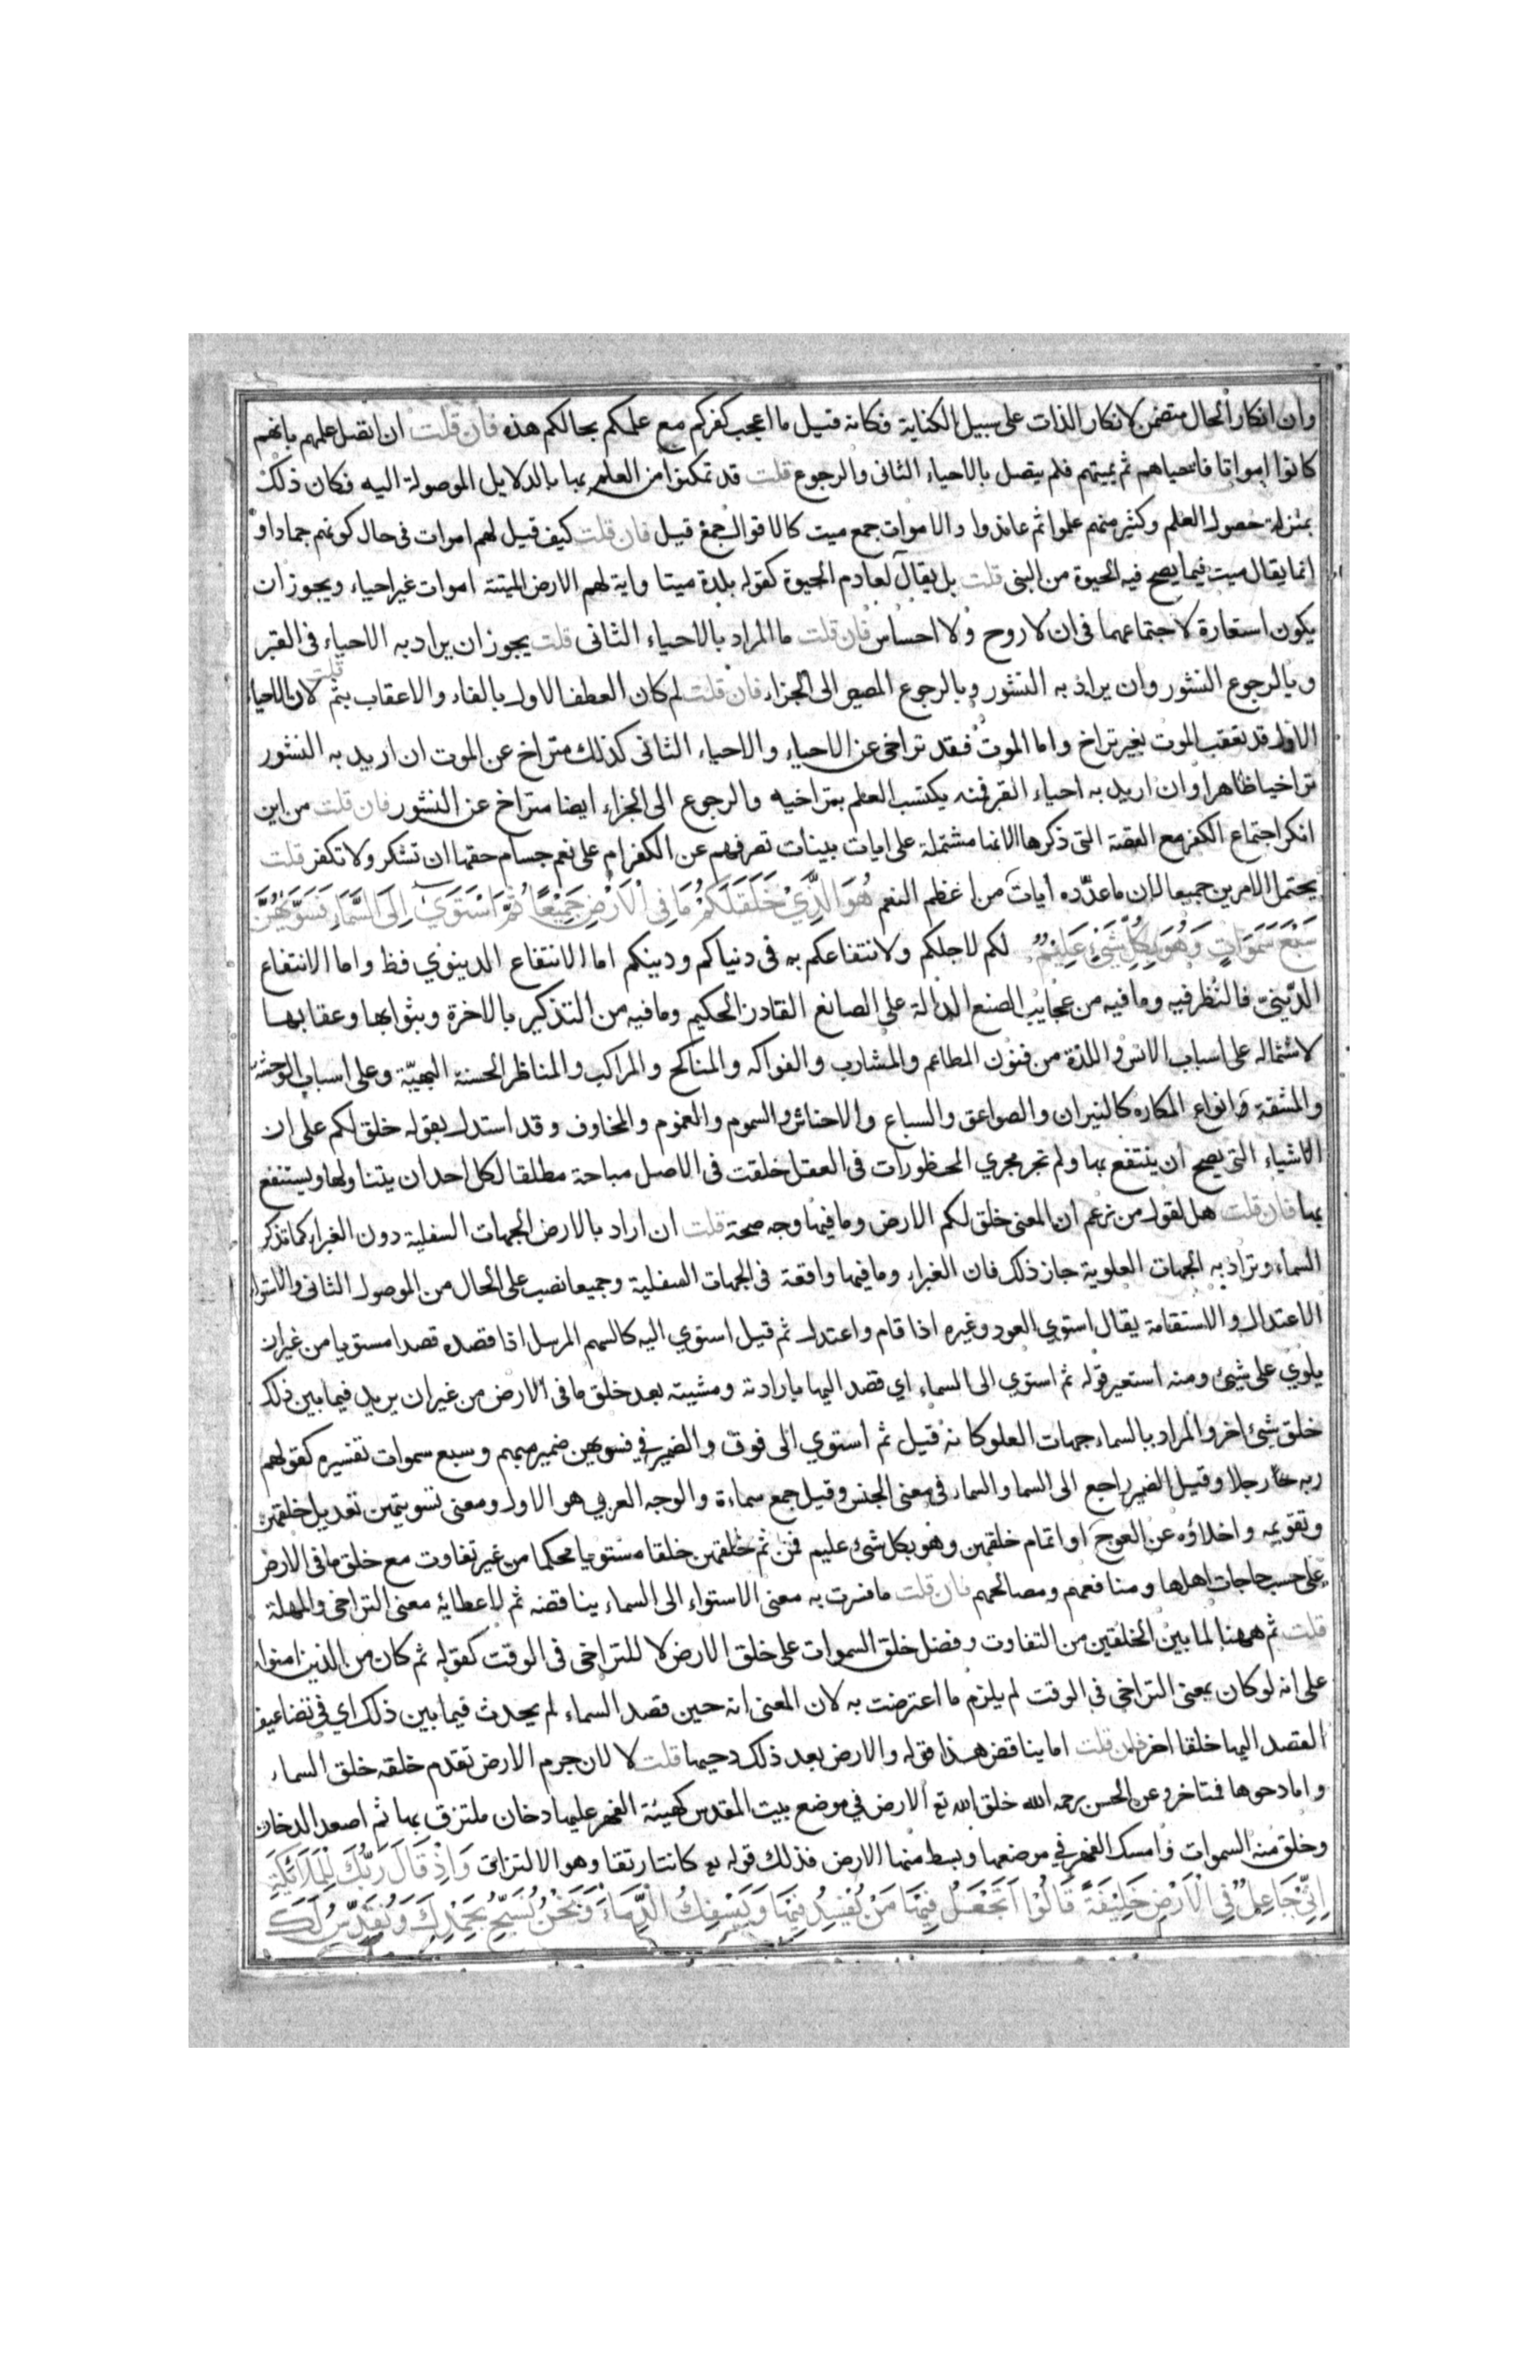 وان انكار الحال متضمن لانكار الذات على سبيل الكناية فكانه قيل ما اعجب كفركم مع علمكم بحالكم هذه فان قلت ان اتصل علمهم بانهم
كانوا امواتا فاحياهم ثم يميتهم فلم يتصل بالاحياء الثانى والرجوع قلت قد تمكنوا من العلم بها بالدلايل الموصولة اليه فكان ذلك
بمنزلة حصول العلم وكثير منهم علموا ثم عاندوا والاموات جمع ميت كالاقوال جمع قيل فان قلت كيف قيل لهم اموات فى حال كونهم جمادا و
انما يقال ميت فيما يصح فيه الحيوة من البنى قلت بل يقال لعادم الحيوة كقوله بلدة ميتا واية لهم الارض الميتة اموات غير احياء ويجوز ان
يكون استعارة لاجتماعهما فى ان لا روح ولا احساس فان قلت ما المراد بالاحياء الثانى قلت يجوز ان يراد به الاحياء فى القبر
وبالرجوع النشور وان يراد به النشور وبالرجوع المصير الى الجزاء فان قلت لم كان العطف الاول بالفاء والاعقاب بثم قلت لان الاحياء
الاول قد تعقب الموت بغير تراخ واما الموت فقد تراخى عن الاحياء والاحياء الثانى كذلك متراخ عن الموت ان اريد به النشور
تراخيا ظاهرا وان اريد به احياء القبر فمنه يكتسب العلم بتراخيه والرجوع الى الجزاء ايضا متراخ عن النشور فان قلت من اين
انكر اجتماع الكفر مع القصة التى ذكرها الانها مشتملة على ايات بينات تصرفهم عن الكفر ام على نعم جسام حقها ان تشكر ولا تكفر قلت
يحتمل الامرين جميعا لان ما عدّده ايات من اعظم النعم هُوَ الَّذِيْ خَلَقَ لَكُمْ مَا فِى الْاَرْضِ جَمِيْعًا ثُمَّ اسْتَوَىٰ اِلَى السَّمَاءِ فَسَوّٰيهُنَّ
سَبْعَ سَمَوَاتٍ وَهُوَ بِكُلِّ شَيْءٍ عَلِيْمٌ لكم لاجلكم ولانتفاعكم به فى دنياكم ودينكم اما الانتفاع الدينوي فظ واما الانتفاع
الدّينىّ فالنظر فيه وما فيه من عجايب الصنع الدالة على الصانع القادر الحكيم وما فيه من التذكير بالاخرة وبثوابها وعقابها
لاشتماله على اسباب الانس واللذة من فنون المطاعم والمشارب والفواكه والمناكح والمراكب والمناظر الحسنة البهيّة وعلى اسباب الوحشة
والمشقة وانواع المكاره كالنيران والصواعق والسباع والاحناش والسموم والغموم والمخاوف وقد استدل بقوله خلق لكم على ان
الاشياء التى يصح ان ينتفع بها ولم تجر مجري المحظورات فى العقل خلقت فى الاصل مباحة مطلقا لكل احد ان يتناولها ويستنفع
بها فان قلت هل لقول من زعم ان المعنى خلق لكم الارض وما فيها وجه صحة قلت ان اراد بالارض الجهات السفلية دون الغبراء كما تذكر
السماء وتراد به الجهات العلوية جاز ذلك فان الغبراء وما فيها واقعة فى الجهات السفلية وجميعا نصب على الحال من الموصول الثانى والاستواء
الاعتدال والاستقامة يقال استوي العود وغيره اذا قام واعتدل ثم قيل استوي اليه كالسهم المرسل اذا قصده قصدا مستويا من غير ان
يلوي على شيئ ومنه استعير قوله ثم استوي الى السماء اي قصد اليها بارادته ومشيته بعد خلق ما فى الارض من غير ان يريد فيما بين ذلك
خلق شيئ اخر والمراد بالسماء جهات العلو كانه قيل ثم استوي الى فوق والضمير في فسويهن ضمير مبهم وسبع سموات تفسيره كقولهم
ربه رجلا وقيل الضمير راجع الى السما والسماء فى معنى الجنس وقيل جمع سماءة والوجه العربي هو الاول ومعنى تسويتهن تعديل خلقهن
وتقويمه واخلاؤه عن العوج او اتمام خلقهن وهو بكل شئ عليم فمن ثم خلقهن خلقا مستويا محكما من غير تفاوت مع خلق ما فى الارض
على حسب حاجات اهلها ومنافعهم ومصالحهم فان قلت ما فسرت به معنى الاستواء الى السماء يناقضه ثم لاعطايه معنى التراخى والمهلة
قلت ثم ههنا لما بين الخلقين من التفاوت وفضل خلق السموات على خلق الارض لا للتراخى فى الوقت كقوله ثم كان من الذين امنوا
على انه لو كان بمعنى التراخى فى الوقت لم يلزم ما اعترضت به لان المعنى انه حين قصد السماء لم يحدث فيما بين ذلك اي فى تضاعيف
القصد اليها خلقا اخر فان قلت اما يناقض هذا قوله والارض بعد ذلك دحيها قلت لا لان جرم الارض تقدم خلقه خلق السماء
واما دحوها فتاخر وعن الحسن رحمه الله خلق الله تع الارض في موضع بيت المقدس كهيئة الفهر عليها دخان ملتزق بها ثم اصعد الدخان
وخلق منه السموات وامسك الفهر في موضعها وبسط منها الارض فذلك قوله تع كانتا رتقا وهو الالتزاق وَاِذْ قَالَ رَبُّكَ لِلْمَلَائِكَةِ
اِنِّيْ جَاعِلٌ فِى الْاَرْضِ خَلِيْفَةً قَالُوْا اَتَجْعَلُ فِيْهَا مَنْ يُفْسِدُ فِيْهَا وَيَسْفِكُ الدِّمَاءَ وَنَحْنُ نُسَبِّحُ بِحَمْدِكَ وَنُقَدِّسُ لَكَ